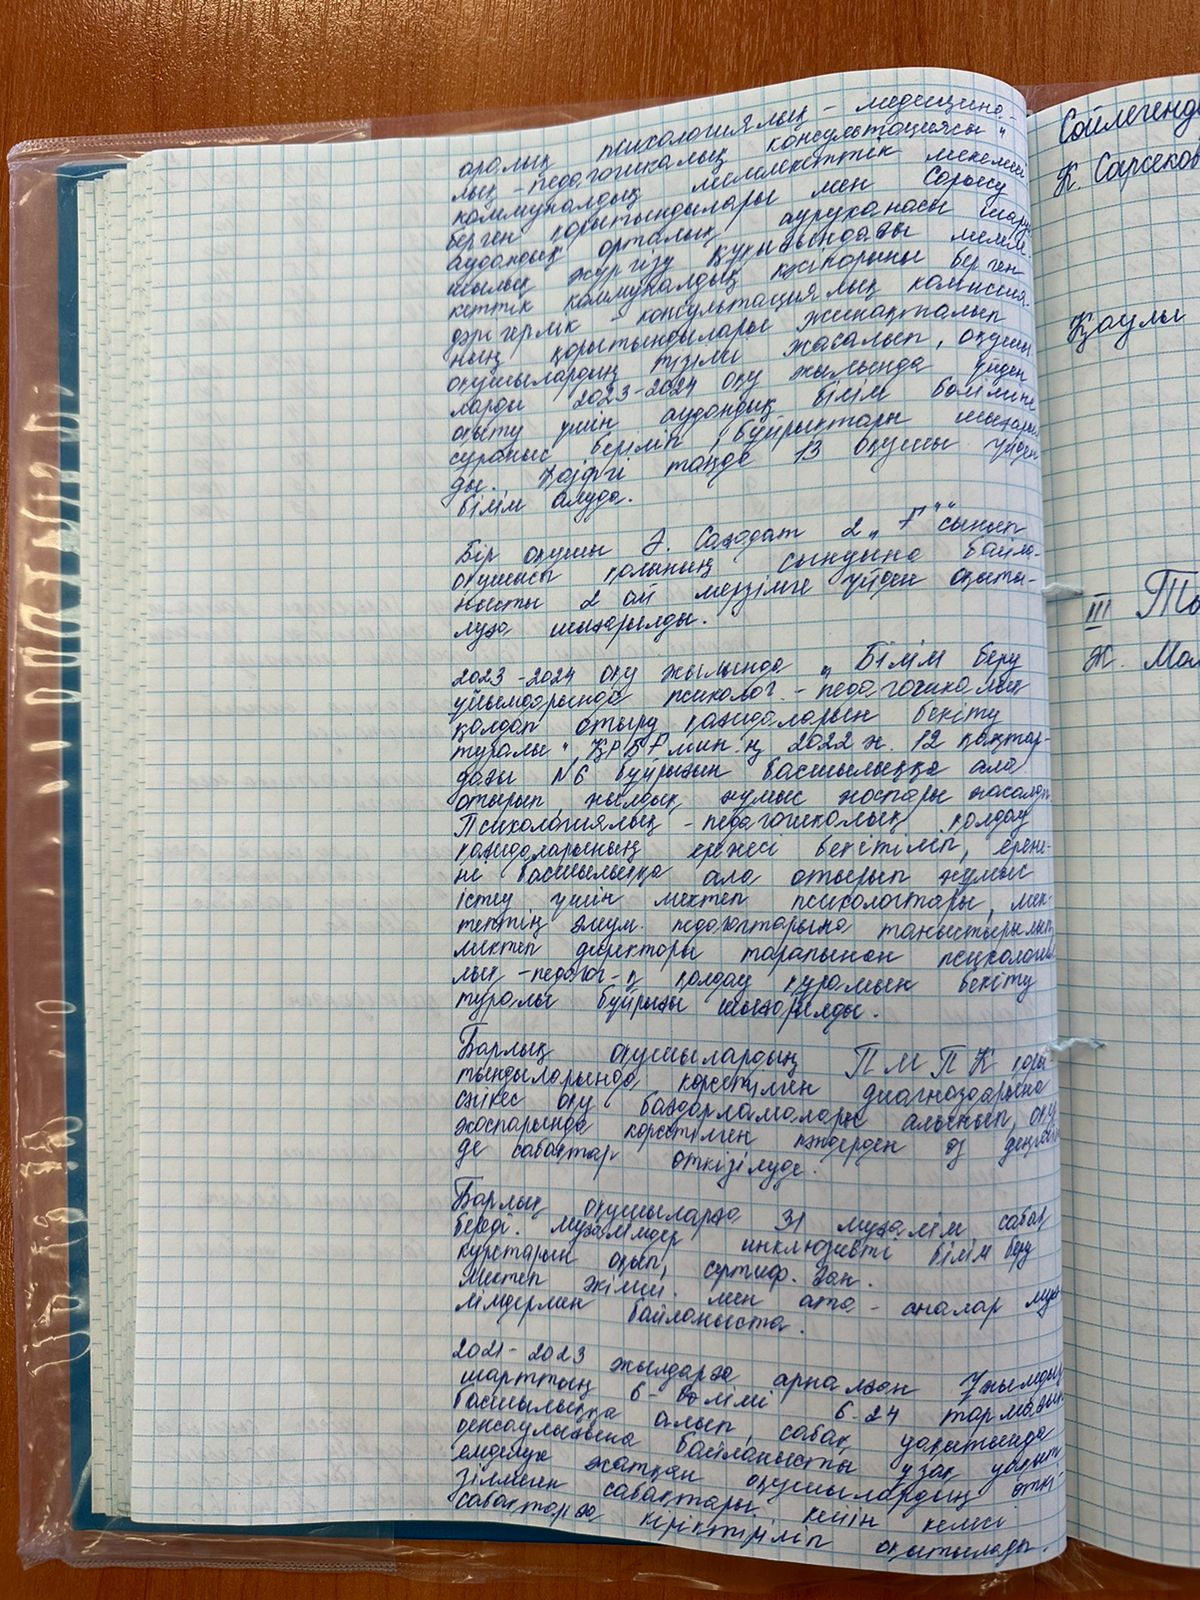 аралық психологиялық - медицина-
лық - педагогикалық консультациясы"
коммуналдық мемлекеттік мекемесі
берген қорытындылары мен Сарысу
аудандық орталық ауруханасы шаруа
шылық жүргізу құқығындағы мемле
кеттік коммуналдық кәсіпорыны берген
дәрігерлік - консультациялық комиссия-
ның қорытындылары жинақталып
оқушылардың тізімі жасалып, оқушы
ларды 2023-2024 оқу жылында үйден
оқыту үшін аудандық білім бөліміне
сұраныс беріліп, бұйрықтары шығарыл
ды. Қазіргі таңда 13 оқушы үйден
білім алуда.
Бір оқушы Ә. Саадат 2 „Г" сынып
оқушысы қолының сынуына байла-
нысты 2 ай мерзімге үйден оқыты-
луға шығарылды.
2023-2024 оқу жылында „Білім беру
ұйымдарында психолог.- педагогикалық
қолдап отыру қағидаларын бекіту
туралы" ҚР БҒ мин.ң 2022 ж. 12 қаңтар-
дағы №6 бұйрығын басшылыққа ала
отырып жылдық жұмыс жоспары жасалды.
Психологиялық - педагогикалық қолдау
қағидаларының ережесі бекітіліп, ереже-
ні басшылыққа ала отырып жұмыс
істеу үшін мектеп психологтары, мек-
тептің әлеум. педагогтарына таныстырылып
мектеп директоры тарапынан психология
лық - педагог-қ қолдау құрамын бекіту
туралы бұйрығы шығарылды.
Барлық оқушылардың ПМПК қоры
тындыларында көрсетілген диагноздарына
сәйкес оқу бағдарламалары алынып, оқу
жоспарында көрсетілген пәндерден өз деңгейін
де сабақтар өткізілуде.
Барлық оқушыларға 31 мұғалім сабақ
береді. Мұғалімдер инклюзивті білім беру
курстарын оқып, сертиф. Зан.
Мектеп әкімш. мен ата - аналар мұға
лімдермен байланыста.
2021-2023 жылдарға арналған Ұжымдық
шарттың 6- бөлімі 6-24 тармағын
басшылыққа алып, сабақ уақытында
денсаулығына байланысты ұзақ уақыт
емделуде жатқан оқушылардың өткі-
зілмеген сабақтары кейін келесі
сабақтарға кіріктіріліп оқытылады.
Сөйлегенд
К. Сарсеков
Қаулы
III
Ж. Мол